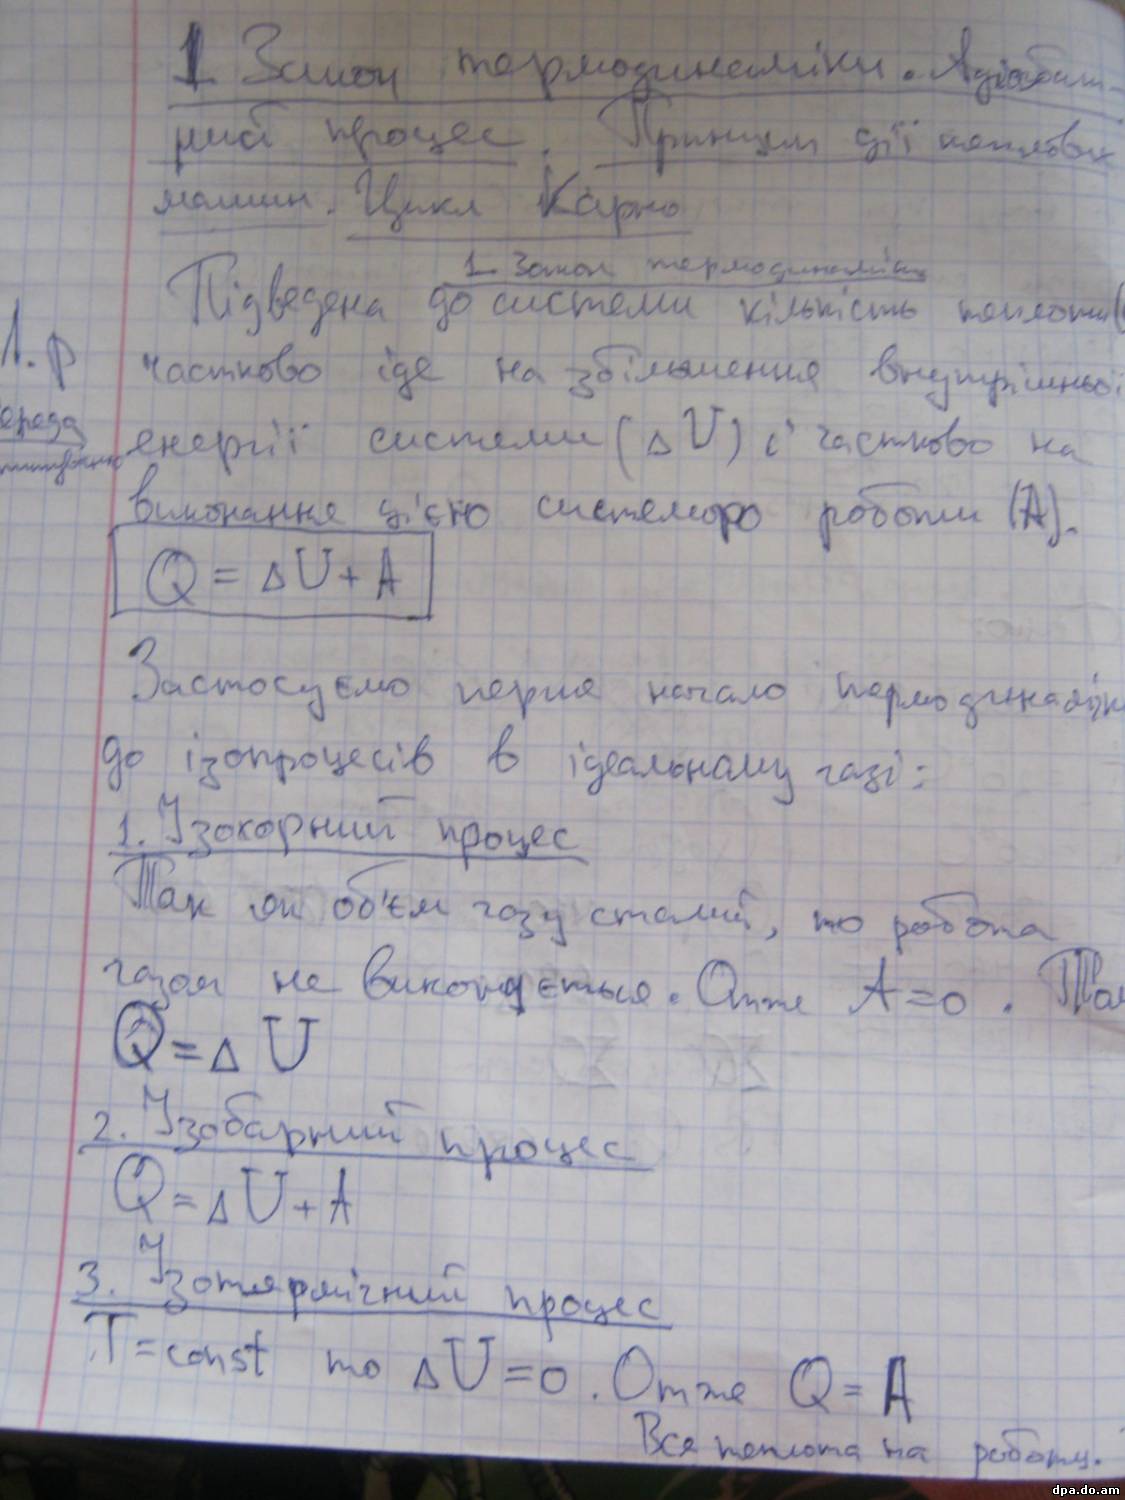 1 Закон термодинаміки. Адіабат-
ний процес. Принцип дії теплових
машин. Цикл Карно
1 Закон термодинаміки
Підведена до системи кількість теплоти (
частково іде на збільшення внутрішньої
Л.р
енергії системи (ΔU) і частково на
середа
виконання цією системою роботи (А).
Q = ΔU + A
Застосуємо перше начало термодинамік
до ізопроцесів в ідеальному газі:
1. Ізохорний процес
Так як об'єм газу сталий, то робота
газом не виконується. Отже A = 0. Так
Q = ΔU
2. Ізобарний процес
Q = ΔU + A
3. Ізотермічний процес
T = const то ΔU = 0. Отже Q = A
Вся теплота на роботу.
dpa.do.am